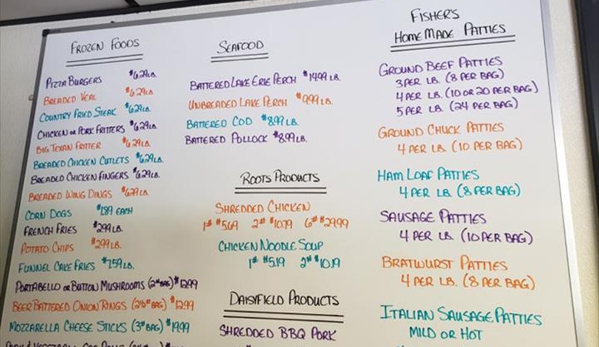 FROZEN FOODS
PIZZA BURGERS $6.29 LB.
BREADED VEAL $6.29 LB.
COUNTRY FRIED STEAK $6.29 LB.
CHICKEN OR PORK FRITTERS $6.29 LB.
BIG TEXAN FRITTER $6.29 LB.
BREADED CHICKEN CUTLETS $6.29 LB.
BREADED CHICKEN FINGERS $6.29 LB.
BREADED WING DINGS $6.29 LB.
CORN DOGS $1.89 EACH
FRENCH FRIES $2.99 LB.
POTATO CHIPS $2.99 LB.
FUNNEL CAKE FRIES $7.59 LB.
PORTABELLO OR BUTTON MUSHROOMS (2# BAG) $12.99
BEER BATTERED ONION RINGS (2½# BAG) $12.99
MOZZARELLA CHEESE STICKS (3# BAG) $19.99
SEAFOOD
BATTERED LAKE ERIE PERCH $14.99 LB.
UNBREADED LAKE PERCH $9.99 LB.
BATTERED COD $8.99 LB.
BATTERED POLLOCK $8.99 LB.
ROOTS PRODUCTS
SHREDDED CHICKEN
1# $5.69 2# $10.79 6# $29.99
CHICKEN NOODLE SOUP
1# $5.19 2# $10.19
DAISYFIELD PRODUCTS
SHREDDED BBQ PORK
FISHER'S
HOMEMADE PATTIES
GROUND BEEF PATTIES
3 PER LB. (8 PER BAG)
4 PER LB. (10 OR 20 PER BAG)
5 PER LB. (24 PER BAG)
GROUND CHUCK PATTIES
4 PER LB. (10 PER BAG)
HAM LOAF PATTIES
4 PER LB. (8 PER BAG)
SAUSAGE PATTIES
4 PER LB. (10 PER BAG)
BRATWURST PATTIES
4 PER LB. (8 PER BAG)
ITALIAN SAUSAGE PATTIES
MILD OR HOT